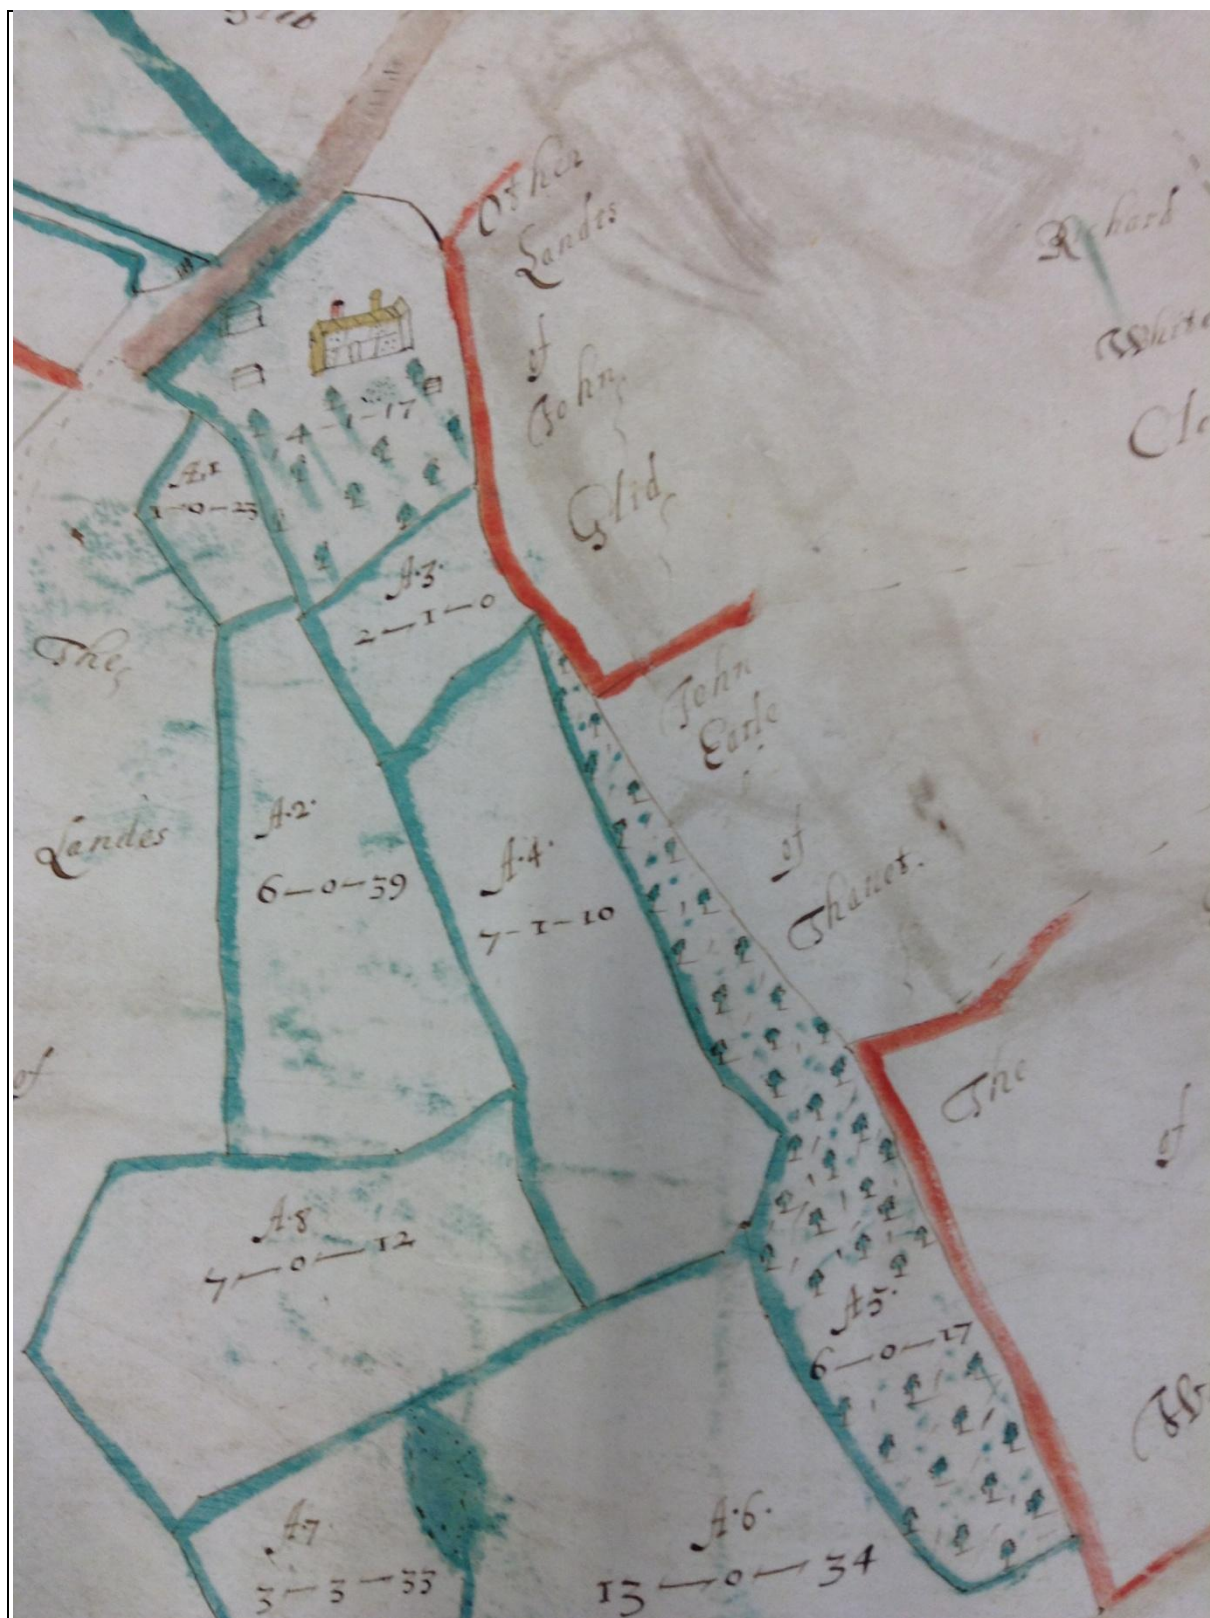 Other
Landes
of
John
Glid
Richard
White
4-1-17
A.1
1-0-23
A.3.
2-1-0
The
John
Earle
of
Thanet.
Landes
A.2.
6-0-39
A.4.
7-1-10
of
The
of
A.8
7-0-12
A.5.
6-0-17
A.7.
3-3-33
A.6.
13-0-34